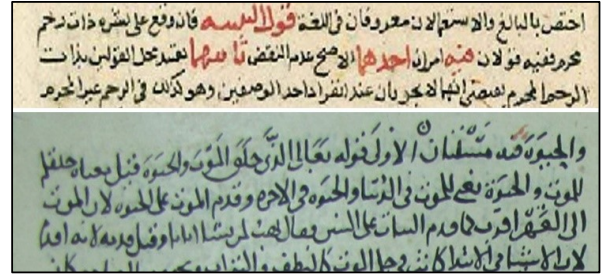 اختص بالبالغ والاستعمالان معروفان في اللغة قوله البسه فان وقع على بشره ذات رحم
محرم ففيه قولان فيه امران احدهما الاصح عدم النقض ثانيهما تقييد محل القولين بذات
الرحم المحرم يقتضي انهما لا يجريان عند انفراد احد الوصفين وهو كذلك في الرحم غير المحرم
والحيوة فيه مسئلتان الاولى قوله تعالى الذي خلق الموت والحيوة قيل معناه خلقكم
للموت والحيوة يعني للموت في الدنيا والحيوة في الاخرة وقدم الموت على الحيوة لان الموت
الى القهر اقرب كما قدم البنات على البنين فقال يهب لمن يشا اناثا وقيل قدمه لانه اقدم
لان الاشيا في الابتدا كانت في حكم الموت كالنطفة والتراب